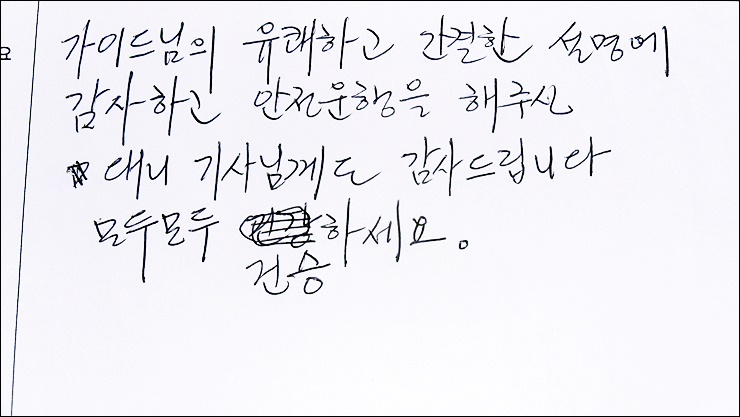 요
가이드님의 유쾌하고 간결한 설명에
감사하고 안전운행을 해주신
대니 기사님께도 감사드립니다
모두모두 하세요.
건승